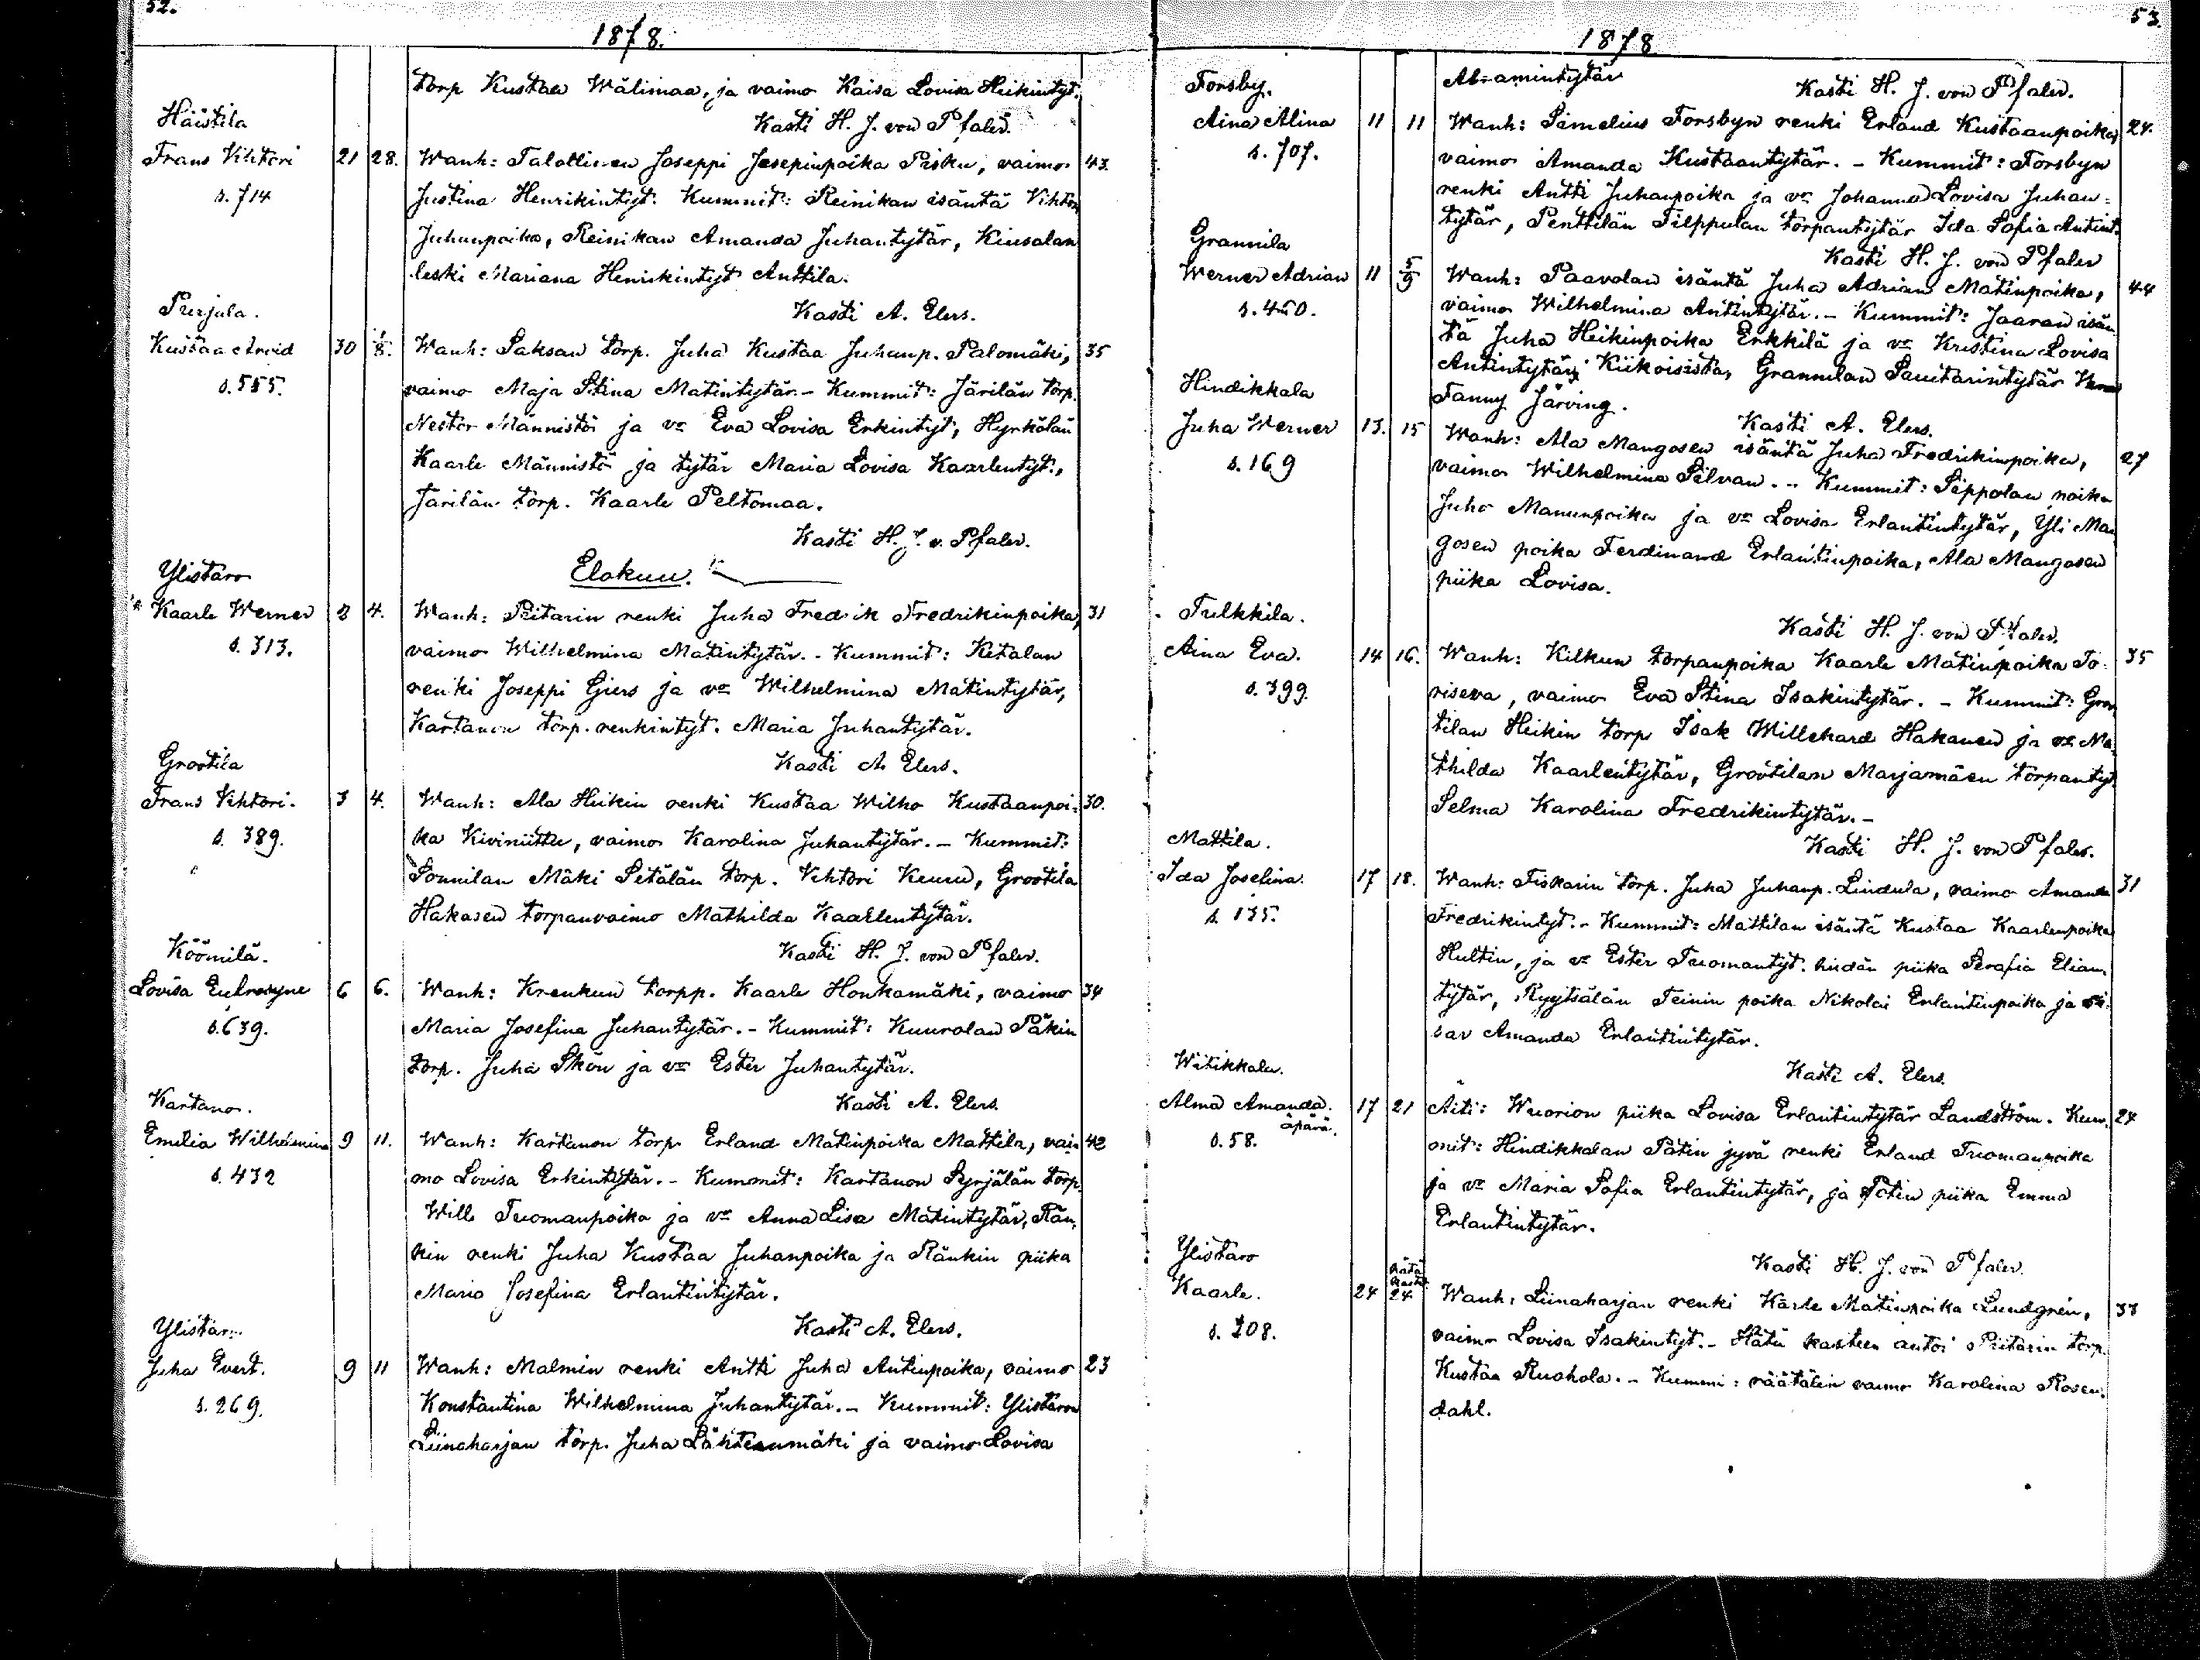 52.
1878.
torp Kustaa Wälimaa, ja vaimo Kaisa Lovisa Heikintyt.
Kasti H. J. von Pfaler.
Häistila
Frans Vihtori 21 28. Wanh: Talollinen Joseppi Josepinpoika Pisku, vaimo 43.
s. 714 Justina Henrikintyt: Kummit: Reinikan isäntä Vihtori
Juhanpoika, Reinikan Amanda Juhantytär, Kiusalan
leski Mariana Henrikintyt Anttila.
Kasti A. Elers.
Purjala.
Kustaa Arvid 30 1/8. Wanh: Saksan torp. Juha Kustaa Juhanp. Palomäki, 35
s. 555. vaimo Maja Stina Matintytär. - Kummit: Järilän torp.
Nestor Männistö ja vo Eva Lovisa Erkintyt, Hyrkölän
Kaarle Männistö ja tytär Maria Lovisa Kaarlentyt.,
Järilän torp. Kaarle Peltomaa.
Kasti H. J. v. Pfaler.
Elokuu.
Ylistaro
Kaarle Werner 2 4. Wanh: Piitarin renki Juha Fredrik Fredrikinpoika, 31
s. 313. vaimo Wilhelmina Matintytär. - Kummit: Kitalan
renki Joseppi Giers ja vo Wilhelmina Matintytär,
Kartanon torp. renkintyt. Maria Juhantytär.
Kasti A. Elers.
Grootila
Frans Vihtori. 3 4. Wanh: Ala Heikin renki Kustaa Wilho Kustaanpoi- 30.
s. 389. ka Kiviniittu, vaimo Karolina Juhantytär. - Kummit:
Sonnilan Mäki Sitälän torp. Vihtori Keuru, Grootila
Hakasen torpanvaimo Mathilda Kaarlentytär.
Kasti H. J. von Pfaler.
Köömilä.
Lovisa Eufrosyne 6 6. Wanh: Krenkun torpp. Kaarle Honkamäki, vaimo 34
s. 639. Maria Josefina Juhantytär. - Kummit: Kuurolan Päkin
torp. Juha Skön ja vo Ester Juhantytär.
Kasti A. Elers.
Kartano.
Emilia Wilhelmina 9 11. Wanh: Kartanon torp. Erland Matinpoika Mattila, vai- 42
s. 432 mo Lovisa Erkintytär. - Kummit: Kartanon Syrjälän torp.
Wille Tuomanpoika ja vo Anna Lisa Matintytär, Rän-
kin renki Juha Kustaa Juhanpoika ja Ränkin piika
Maria Josefina Erlantintytär.
Kasti A. Elers.
Ylistaro
Juha Evert. 9 11 Wanh: Malmin renki Antti Juha Antinpoika, vaimo 23
s. 269. Konstantina Wilhelmina Juhantytär. - Kummit: Ylistaron
Liinaharjan torp. Juha Lähteenmäki ja vaimo Lovisa
53.
1878
Abramintytär Kasti H. J. von Pfaler.
Forsby.
Aina Alina 11 11 Wanh: Simelius Forsbyn renki Erland Kustaanpoika, 24.
s. 707. vaimo Amanda Kustaantytär. - Kummit: Forsbyn
renki Antti Juhanpoika ja vo Johanna Lovisa Juhan-
tytär, Penttilän Filppulan torpantytär Ida Sofia Antint.
Kasti H. J. von Pfaler
Grannila
Werner Adrian 11 5/9 Wanh: Paavolan isäntä Juha Adrian Matinpoika, 44
s. 450. vaimo Wilhelmina Antintytär. - Kummit: Jaaran isän-
tä Juha Heikinpoika Erkkilä ja vo Kristina Lovisa
Antintytär Kiikoisista, Grannilan
Fanny Järving.
Kasti A. Elers.
Hindikkala
Juha Werner 13. 15 Wanh: Ala Mangosen isäntä Juha Fredrikinpoika, 27
s. 169 vaimo Wilhelmina Silvan. - Kummit: Sippolan poika
Juho Manunpoika ja vo Lovisa Erlantintytär, Yli Man
gosen poika Ferdinand Erlantinpoika, Ala Mangosen
piika Lovisa.
Kasti H. J. von Pfaler.
Tulkkila.
Aina Eva. 14 16. Wanh: Kilkun torpanpoika Kaarle Matinpoika To- 35
s. 399. riseva, vaimo Eva Stina Isakintytär. - Kummit: Groo
tilan Heikin torp Isak Willehard Hakanen ja vo Ma-
thilda Kaarlentytär, Grootilan Marjamäen torpantyt
Selma Karolina Fredrikintytär. -
Kasti H. J. von Pfaler.
Mattila.
Ida Josefina. 17 18. Wanh: Fiskarin torp. Juha Juhanp. Lindula, vaimo Amanda 31
s. 135. Fredrikintyt. - Kummit: Mattilan isäntä Kustaa Kaarlenpoika
Hultin, ja vo Ester Tuomantyt. heidän piika Serafia Eliam-
tytär, Ryytsälän Teinin poika Nikolai Erlantinpoika ja si-
sar Amanda Erlantintytär.
Kasti A. Elers.
Witikkala.
Alma Amanda. 17 21 Äiti: Wuorion piika Lovisa Erlantintytär Landström. Kum- 24
äpärä.
s. 58. mit: Hindikkalan Pätin jyvä renki Erland Tuomanpoika
ja vo Maria Sofia Erlantintytär, ja Potin piika Emma
Erlantintytär.
Kasti H. J. von Pfaler.
Ylistaro
Kaarle. 24 Hätä kaste 24 Wanh: Liinaharjan renki Karle Matinpoika Lundgrén, 33
s. 208. vaimo Lovisa Isakintyt. - Hätä kasteen antoi Piitarin torp.
Kustaa Ruohola. - Kummi: räätälin vaimo Karolina Rosen-
dahl.